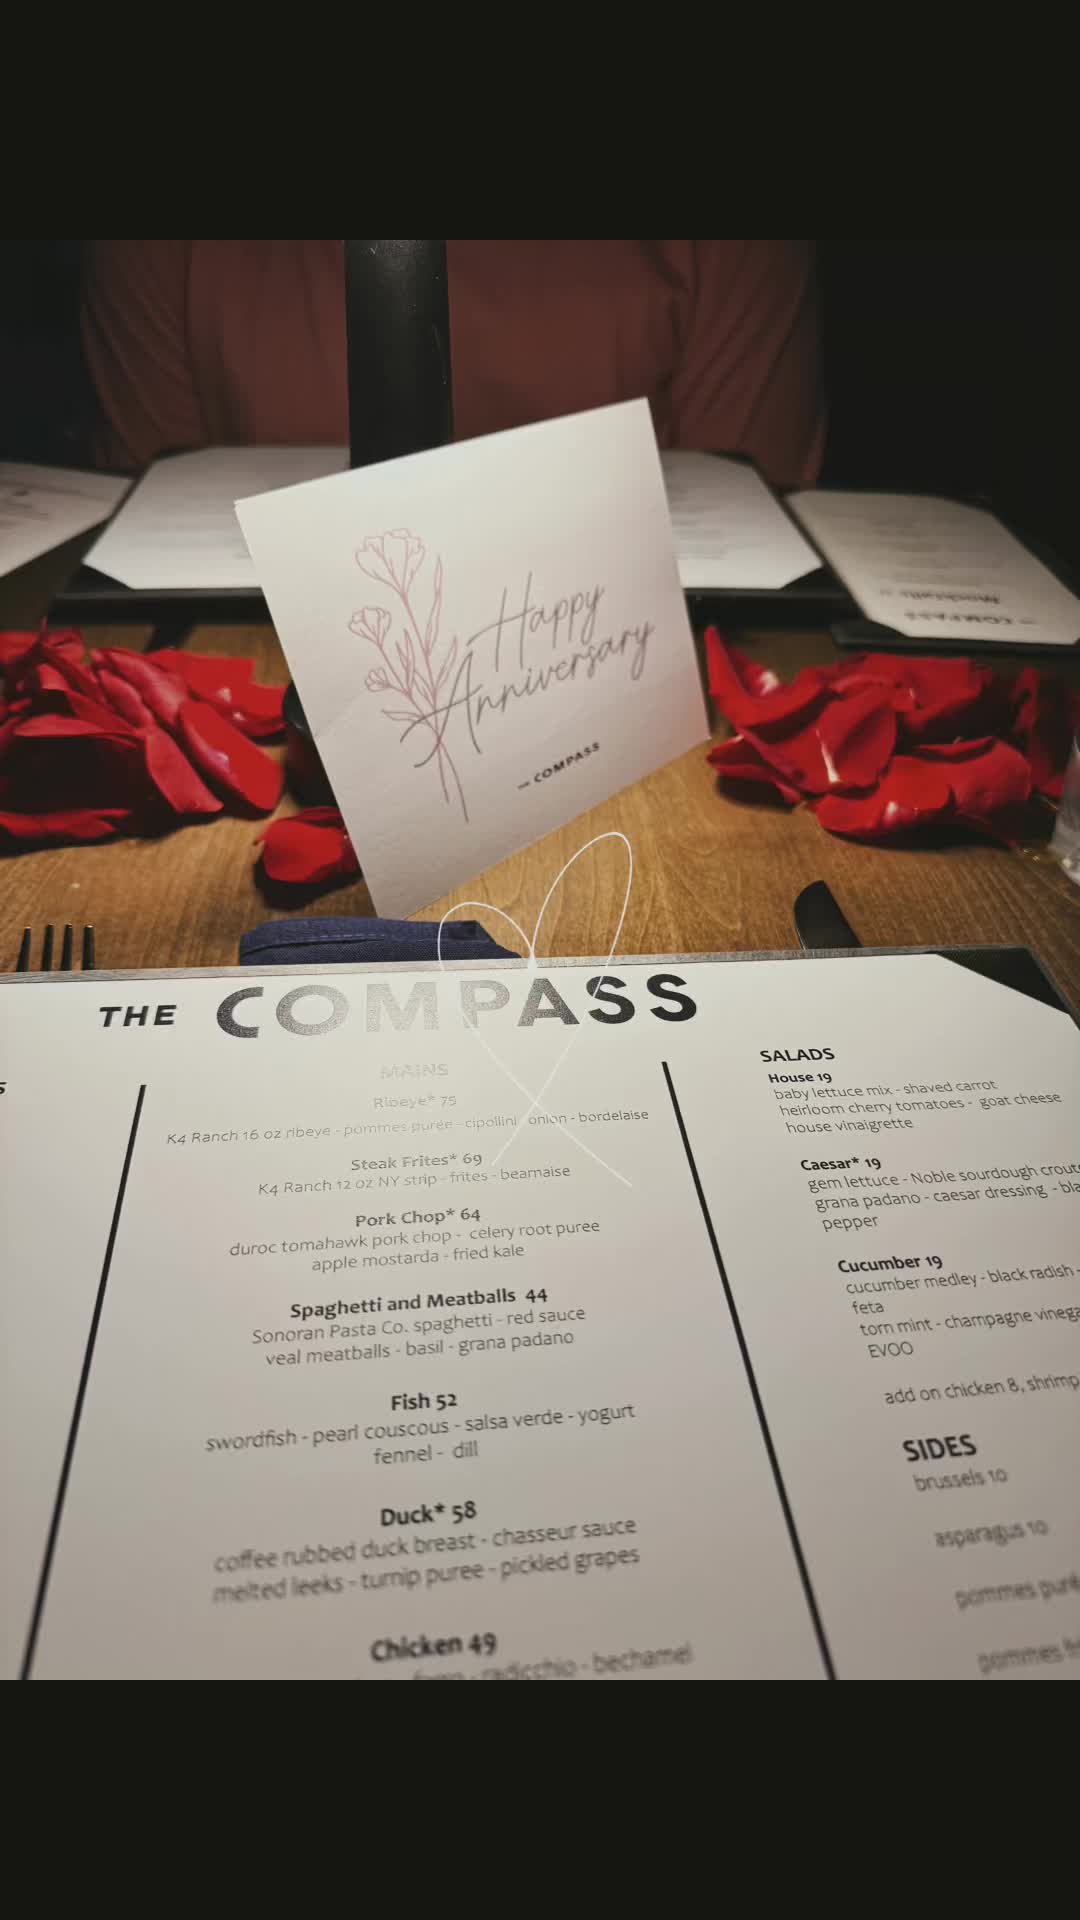 Happy
Anniversary
COMPASS
THE COMPASS
MAINS
Ribeye* 75
K4 Ranch 16 oz ribeye - pommes purée - cipollini onion - bordelaise
Steak Frites* 69
K4 Ranch 12 oz NY strip - frites - bearnaise
Pork Chop* 64
duroc tomahawk pork chop - celery root puree
apple mostarda - fried kale
Spaghetti and Meatballs 44
Sonoran Pasta Co. spaghetti - red sauce
veal meatballs - basil - grana padano
Fish 52
swordfish - pearl couscous - salsa verde - yogurt
fennel - dill
Duck* 58
coffee rubbed duck breast - chasseur sauce
melted leeks - turnip puree - pickled grapes
Chicken 49
- radicchio - bechamel
SALADS
House 19
baby lettuce mix - shaved carrot
heirloom cherry tomatoes - goat cheese
house vinaigrette
Caesar* 19
gem lettuce - Noble sourdough
grana padano - caesar dressing -
pepper
Cucumber 19
cucumber medley - black radish -
feta
torn mint - champagne
EVOO
add on chicken 8, shrimp
SIDES
brussels 10
asparagus 10
pommes
pommes